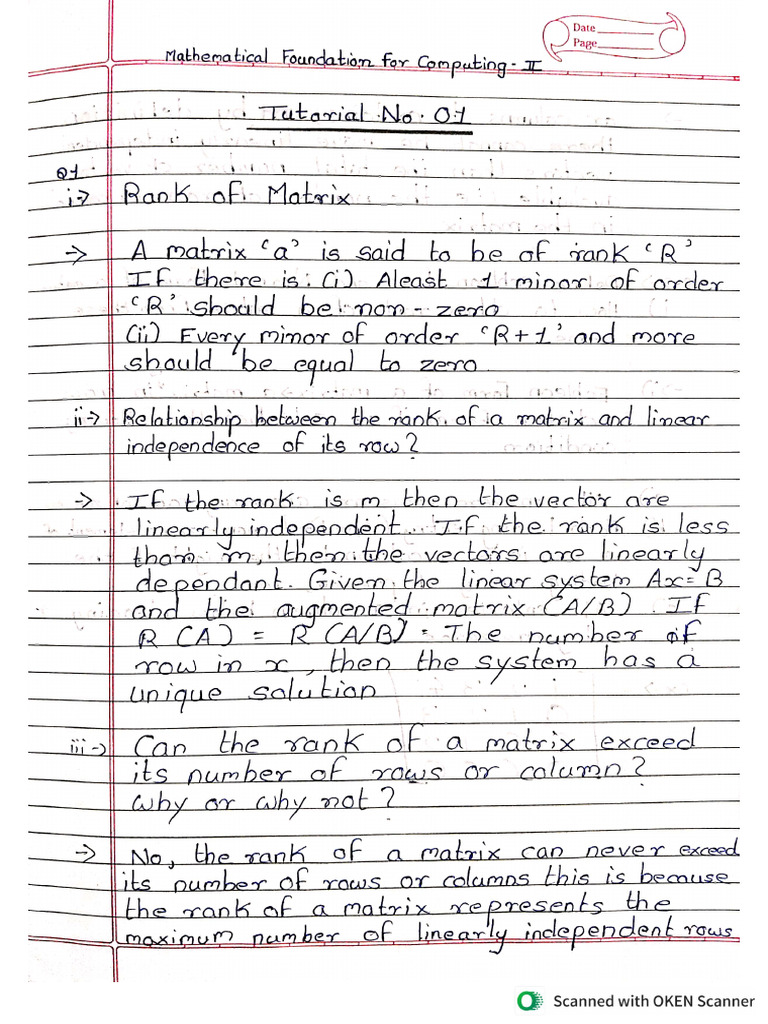 Date
Page
Mathematical Foundation for Computing - II
Tutorial No. 01
Q1
i→ Rank of Matrix
→ A matrix 'a' is said to be of rank 'R'
If there is: (i) Aleast 1 minor of order
'R' should be non-zero
(ii) Every minor of order 'R+1' and more
should be equal to zero
ii→ Relationship between the rank of a matrix and linear
independence of its row?
→ If the rank is m then the vector are
linearly independent. If the rank is less
than m, then the vectors are linearly
dependant. Given the linear system Ax=B
and the augmented matrix (A/B). If
R(A) = R(A/B) = The number of
row in x, then the system has a
unique solution
iii→ Can the rank of a matrix exceed
its number of rows or column?
why or why not?
→ No, the rank of a matrix can never exceed
its number of rows or columns this is because
the rank of a matrix represents the
maximum number of linearly independent rows
Scanned with OKEN Scanner